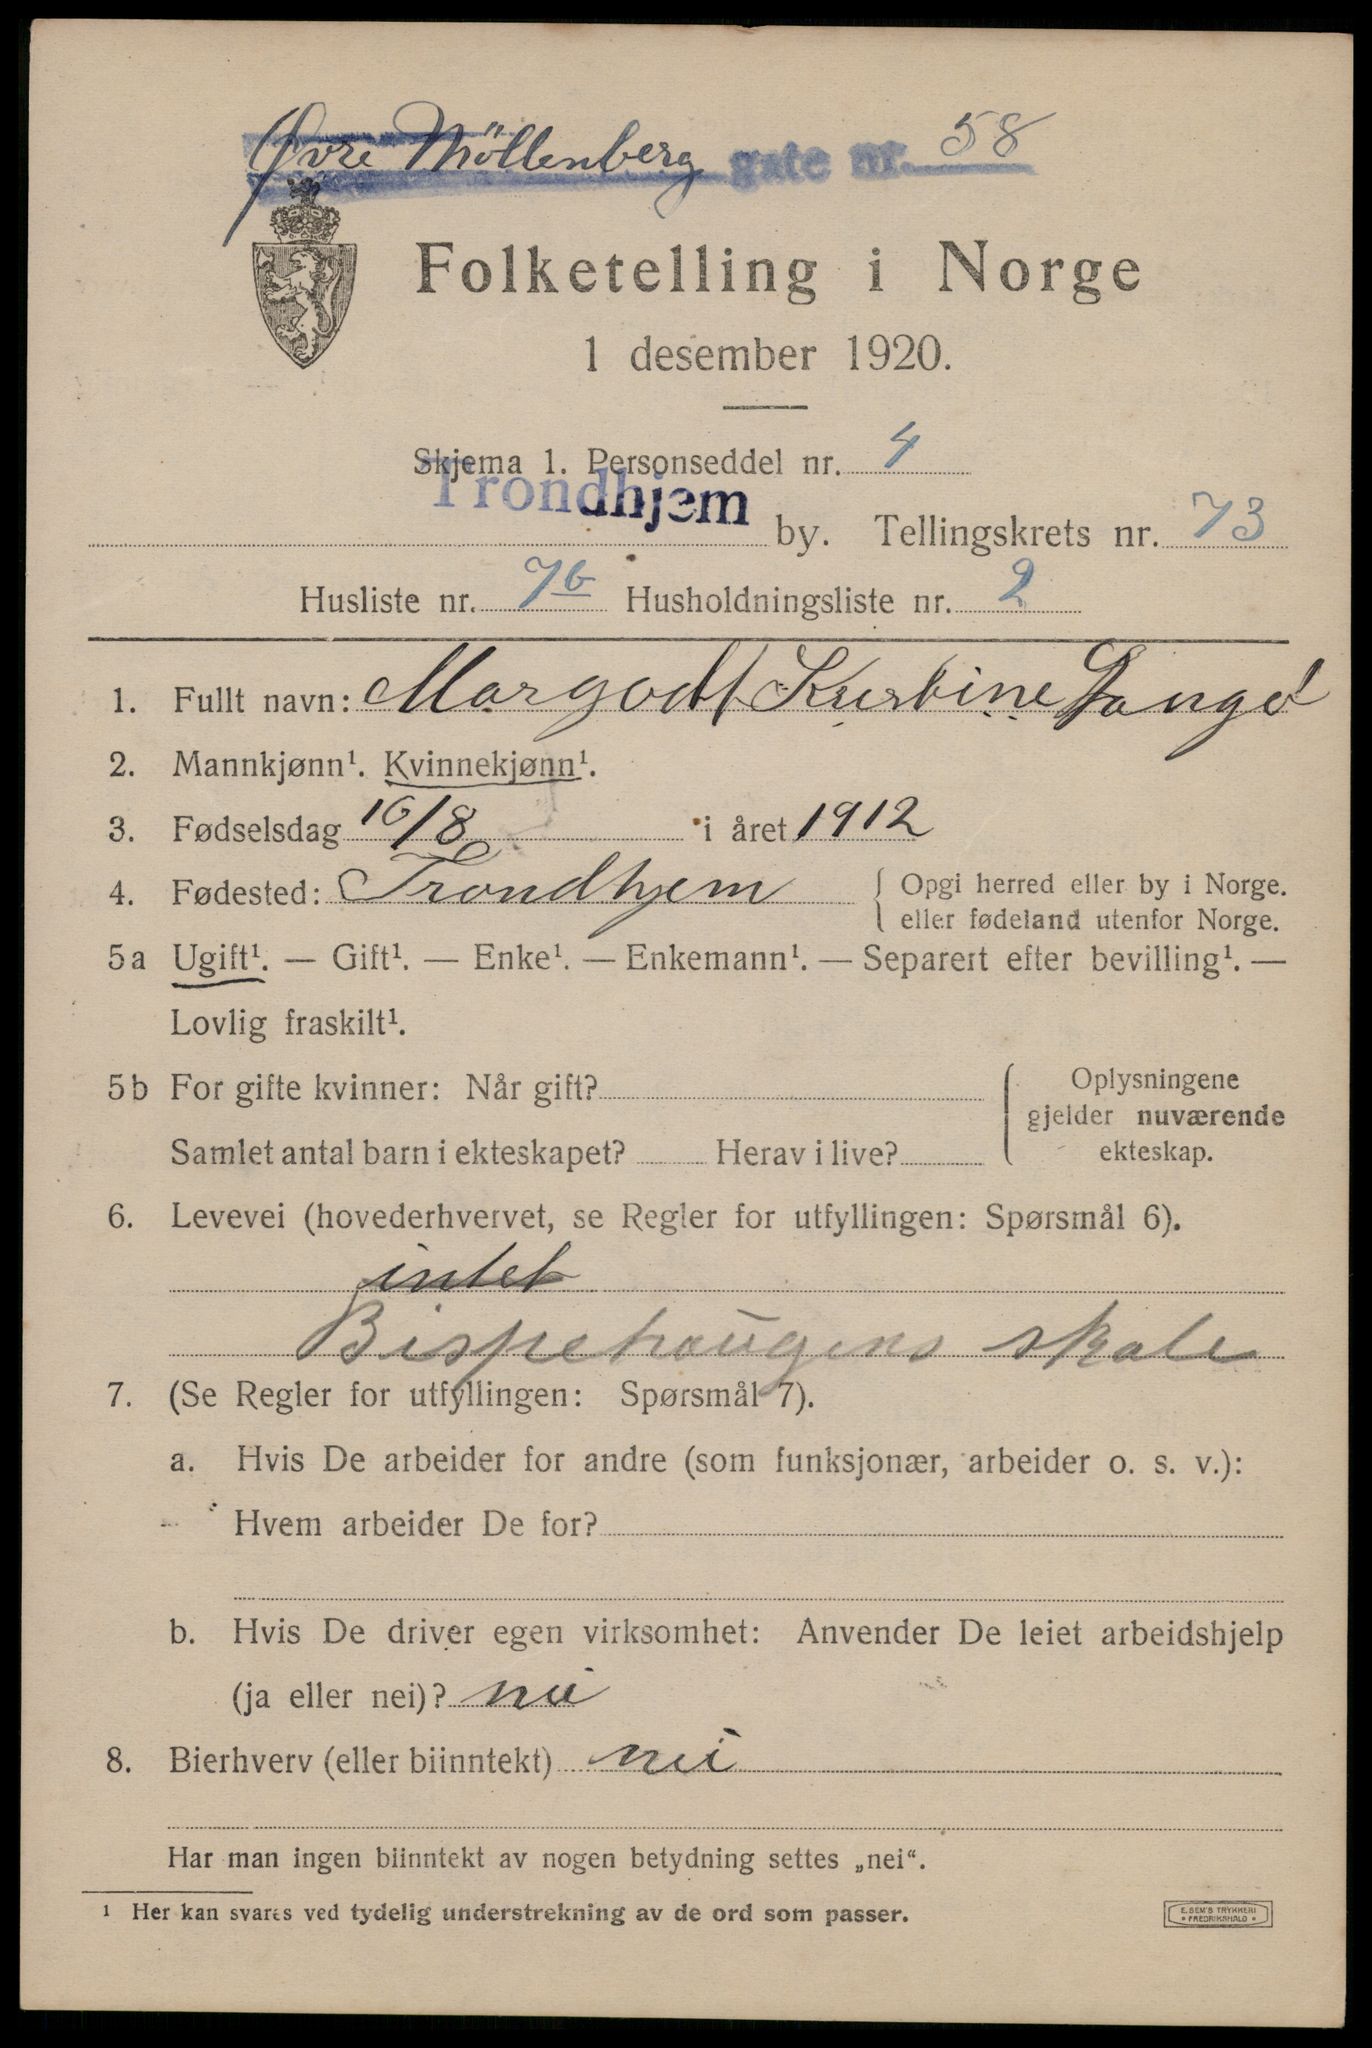 Øvre Möllenberg gate nr. 58
Folketelling i Norge
1 desember 1920.
Skjema 1. Personseddel nr. 4
Trondhjem by. Tellingskrets nr. 73
Husliste nr. 7b Husholdningsliste nr. 2
1. Fullt navn: Margodt Kursine Langø
2. Mannkjønn¹. Kvinnekjønn¹.
3. Fødselsdag 16/8 i året 1912
4. Fødested: Trondhjem { Opgi herred eller by i Norge.
eller fødeland utenfor Norge.
5a Ugift¹. — Gift¹. — Enke¹. — Enkemann¹. — Separert efter bevilling¹. —
Lovlig fraskilt¹.
5b For gifte kvinner: Når gift? { Oplysningene
gjelder nuværende
Samlet antal barn i ekteskapet? Herav i live? ekteskap.
6. Levevei (hovederhvervet, se Regler for utfyllingen: Spørsmål 6).
intet
Bispehaugens skole
7. (Se Regler for utfyllingen: Spørsmål 7).
a. Hvis De arbeider for andre (som funksjonær, arbeider o. s. v.):
Hvem arbeider De for?
b. Hvis De driver egen virksomhet: Anvender De leiet arbeidshjelp
(ja eller nei)? nei
8. Bierhverv (eller biinntekt) nei
Har man ingen biinntekt av nogen betydning settes „nei“.
¹ Her kan svares ved tydelig understrekning av de ord som passer.
E. SEM'S TRYKKERI
FREDRIKSHALD